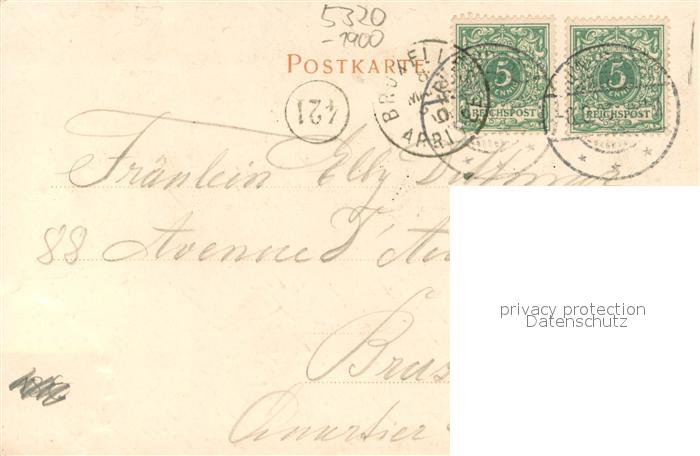 5320
-1900
POSTKARTE
BRUXELLES
ARRIVÉE
5 PFENNIG REICHSPOST
5 PFENNIG REICHSPOST
421
Fräulein Elly Dittmar
88 Avenue d'Au
privacy protection
Datenschutz
Brus
Quartier